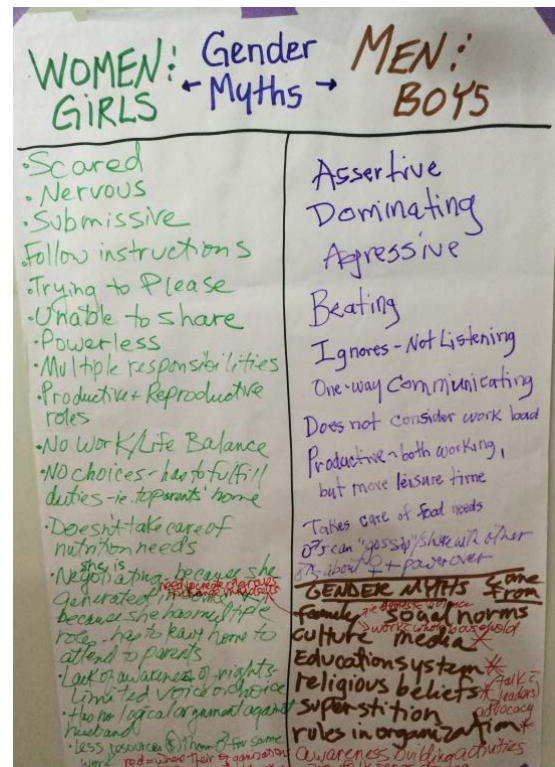 WOMEN:
GiRLS
Gender
← Myths →
MEN:
BOYS
• Scared
• Nervous
• Submissive
• Follow instructions
• Trying to Please
• Unable to share
• Powerless
• Multiple responsibilities
• Productive + Reproductive
roles
• No Work/Life Balance
• No choices - has to fulfill
duties - ie. to parents' home
• Doesn't take care of
nutrition needs
• Negotiating - because she
she is
generates
because she has multiple
roles - has to leave home to
attend to parents
• Lack of awareness of rights-
limited voice or choice
• Has no logical argument against
husband
• Less resources for same
work
red = where their organizations
Assertive
Dominating
Agressive
Beating
Ignores - Not Listening
One-way Communicating
Does not consider work load
Productive - both working,
but more leisure time
Takes care of food needs
♂'s can "gossip"/share with other
♂'s about ♀ + power over
GENDER MYTHS come
from
family social norms
culture media
Education system
religious beliefs
(talk
leaders)
superstition
advocacy
rules in organization
awareness building activities